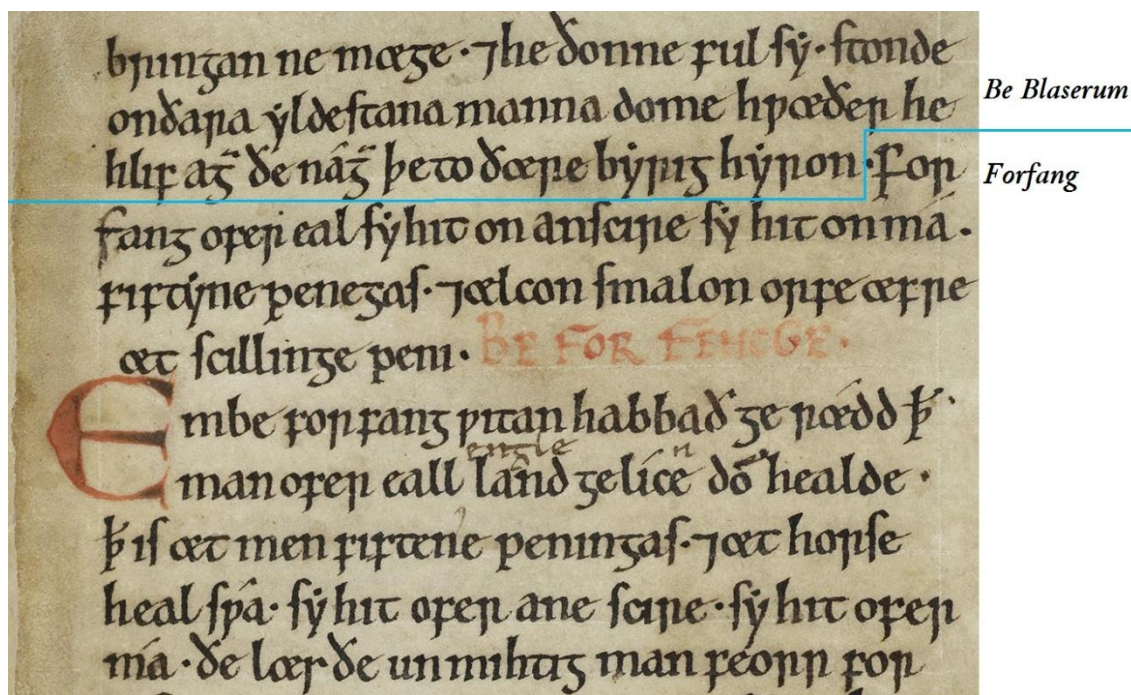 bringan ne mæge · ⁊ he ðonne ful sẏ · stonde
Be Blaserum
onðara ẏldestana manna dome hƿæðer he
hlif ag̅ ðe nág̅ þe to ðære bẏrig hẏron · For
Forfang
fang ofer eal sẏ hit on anscire sẏ hit on má ·
fiftẏne penegas · ⁊ ælcon smalon orfe æfre
æt scillinge peni · BE FOR FENCGE ·
Embe forfang ƿitan habbað ge rǽdd ꝥ
engle n
man ofer eall land gelíce dō healde ·
ꝥ is æt men fiftene peningas · ⁊ æt horse
heal sƿá · sẏ hit ofer ane scire · sẏ hit ofer
má · ðe lær ðe unmihtig man féorr for